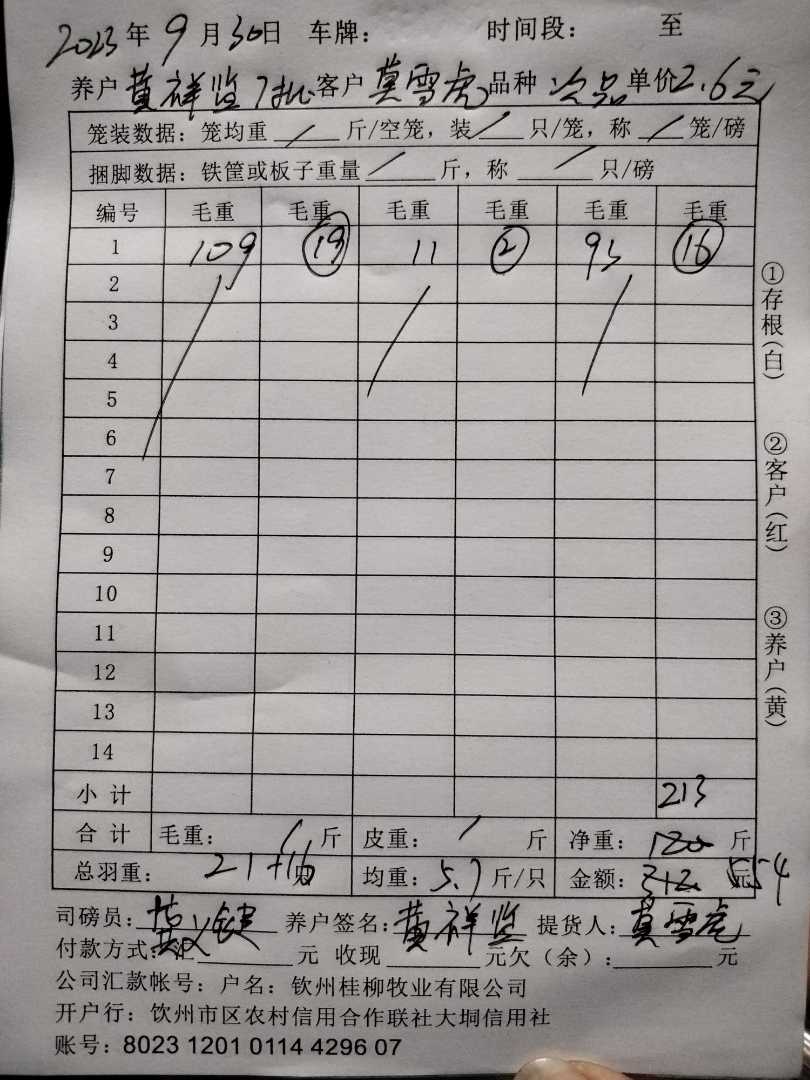 2023年9月30日 车牌： 时间段： 至
养户 黄祥监 7批 客户 莫雪虎 品种 次品 单价 2.6元
笼装数据：笼均重 / 斤/空笼，装 / 只/笼，称 / 笼/磅
捆脚数据：铁筐或板子重量 / 斤，称 / 只/磅
编号 毛重 毛重 毛重 毛重 毛重 毛重
1 109 19 11 2 93 16
2
3
4
5
6
7
8
9
10
11
12
13
14
小计 213
合计 毛重： / 斤 皮重： / 斤 净重： 120 斤
总羽重： 21+16 均重： 5.7 斤/只 金额： 312 元 554
司磅员： 养户签名：黄祥监 提货人：莫雪虎
付款方式：汇 元 收现 元欠（余）： 元
公司汇款帐号：户名：钦州桂柳牧业有限公司
开户行：钦州市区农村信用合作联社大垌信用社
账号：8023 1201 0114 4296 07
①存根（白）
②客户（红）
③养户（黄）